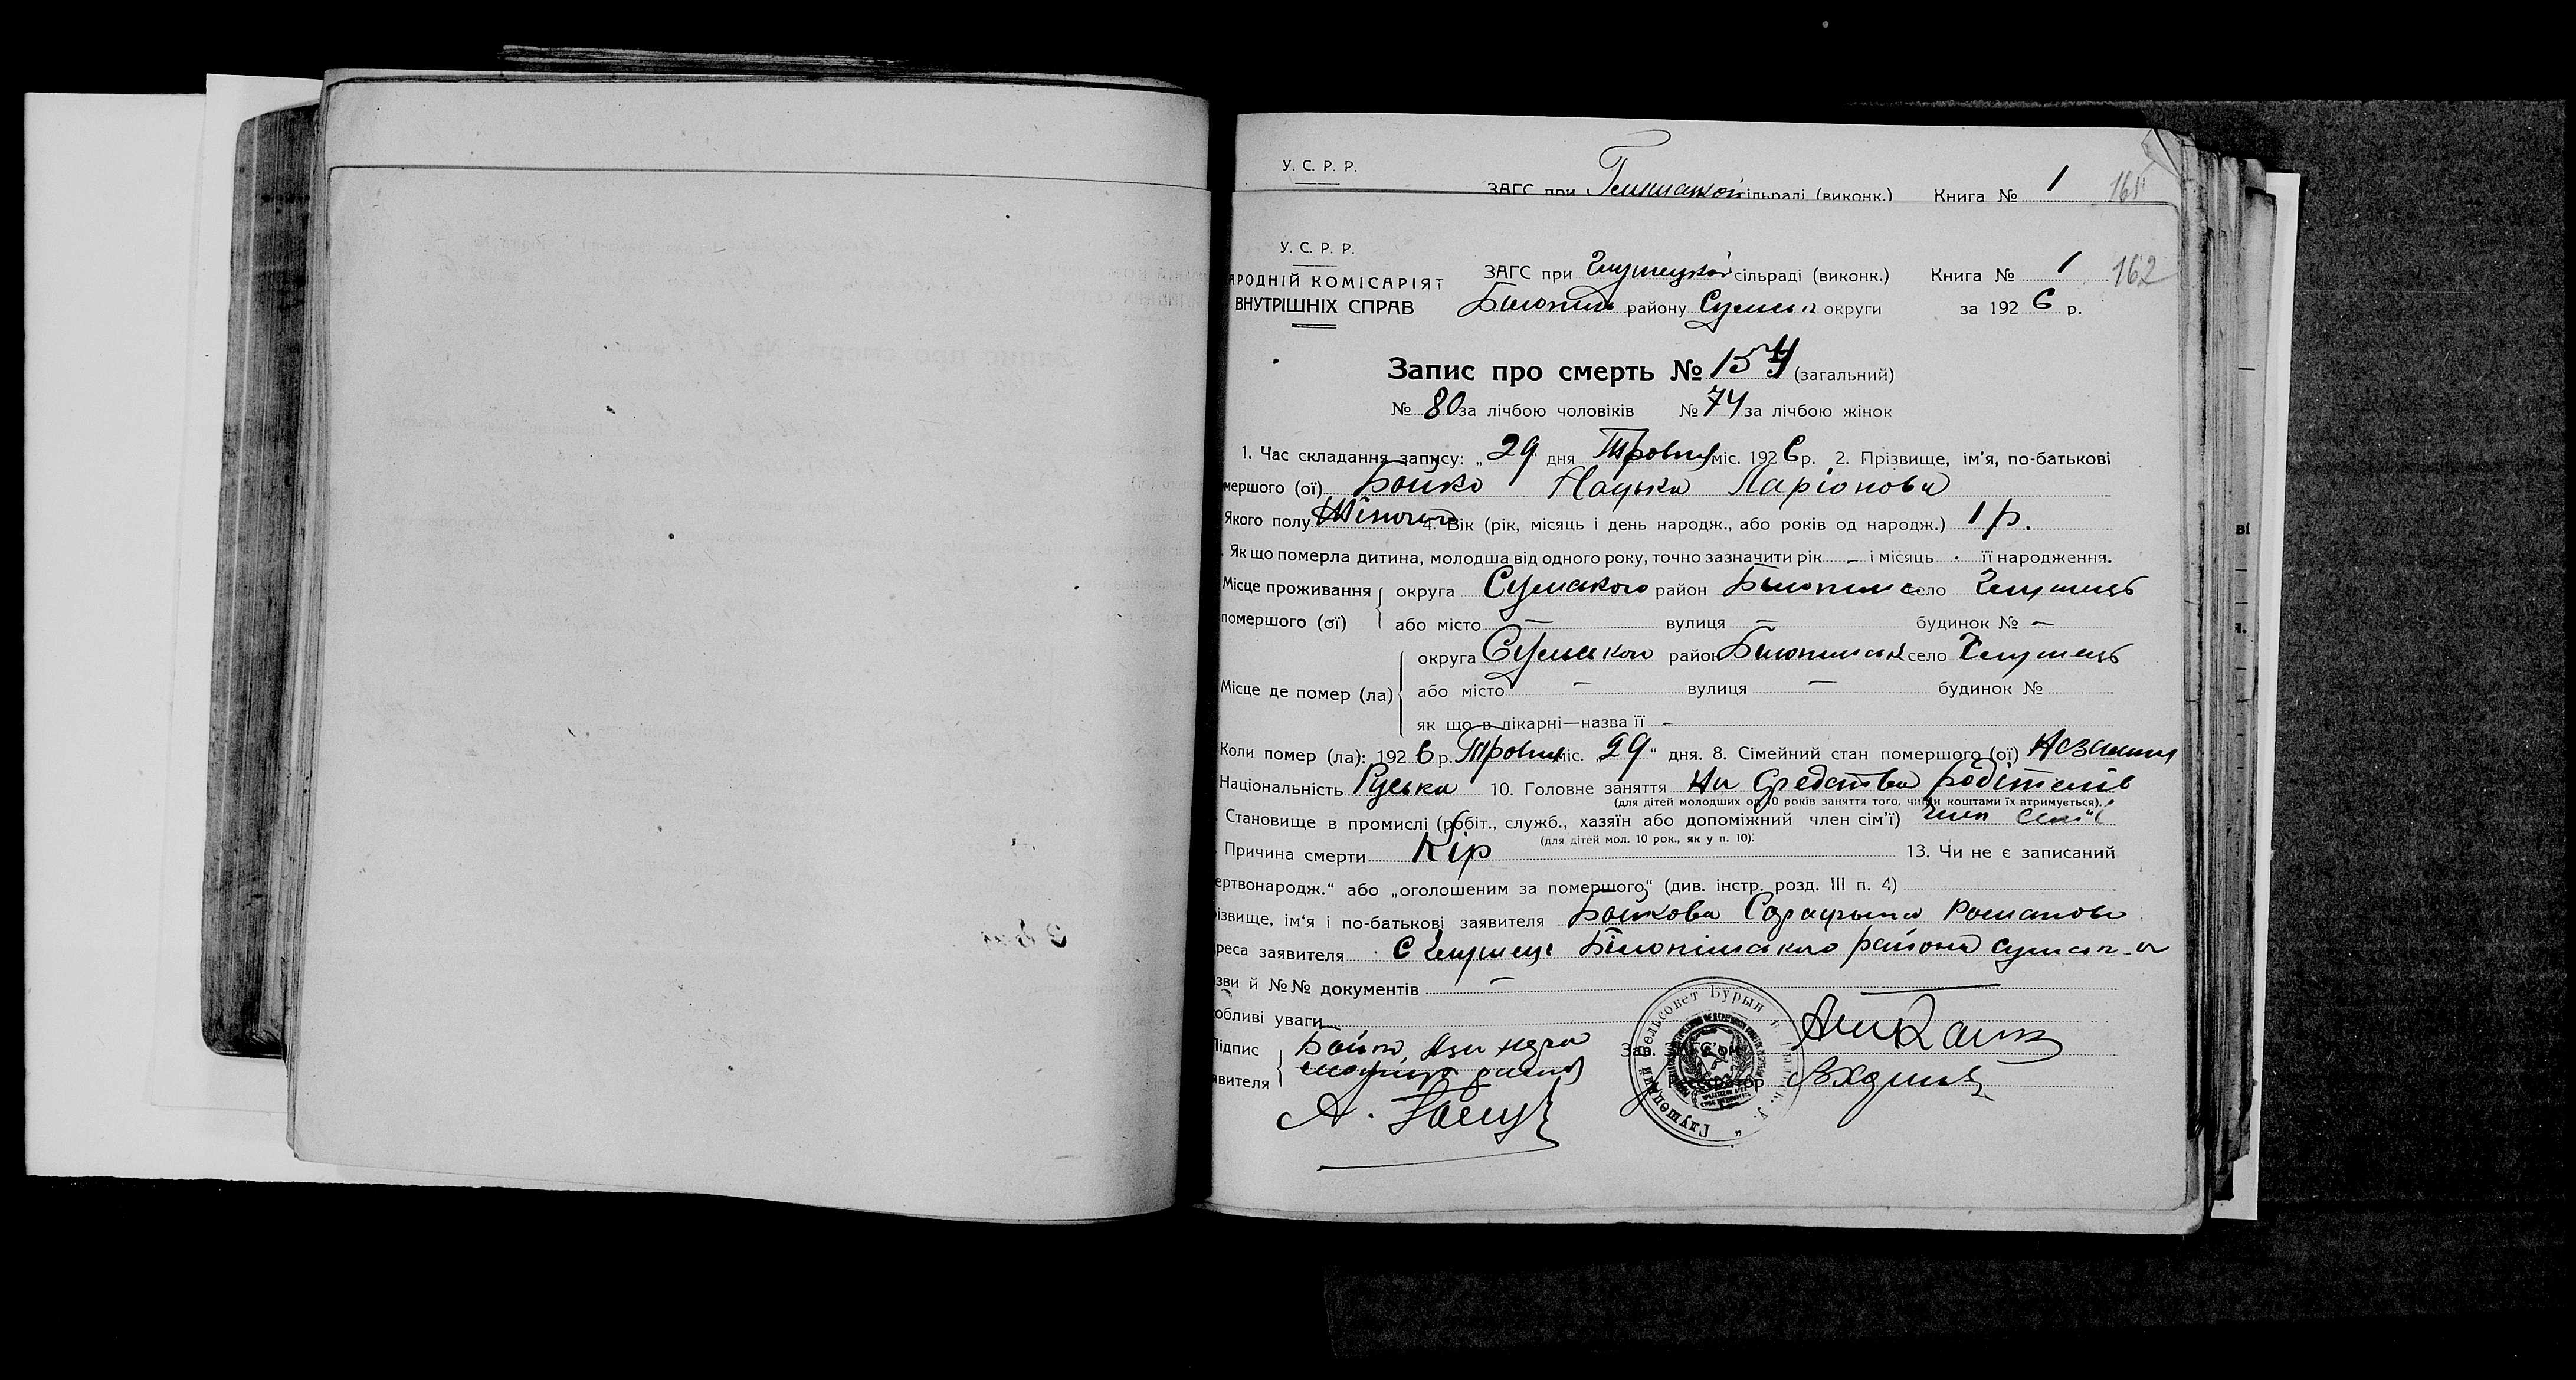 У. С. Р. Р.
ЗАГС при сільраді (виконк.) Книга № 1 161
У. С. Р. Р.
АРОДНІЙ КОМІСАРІЯТ ЗАГС при Глушецкой сільраді (виконк.) Книга № 1 162
ВНУТРІШНІХ СПРАВ Білопіль району Сумськ округи за 192 6 р.
Запис про смерть № 154 (загальний)
№ 80 за лічбою чоловіків № 74 за лічбою жінок
1. Час складання запису: „ 29 дня Травня міс. 192 6 р. 2. Прізвище, ім’я, по-батькові
мершого (ої) Бойко Ларіонова
Якого полу Жіночого 4. Вік (рік, місяць і день народж., або років од народж.) 1 р.
. Як що померла дитина, молодша від одного року, точно зазначити рік – і місяць · її народження.
Місце проживання округа Сумського район село Глушець
помершого (ої) або місто — вулиця — будинок № —
округа Сумського район село Глушець
Місце де помер (ла) або місто — вулиця — будинок №
як що в лікарні—назва її –
Коли помер (ла): 192 6 р. Травня міс. 29 “ дня. 8. Сімейний стан помершого (ої)
Національність Руська 10. Головне заняття На средства
(для дітей молодших од 10 років заняття того, чиїми коштами їх втримується).
Становище в промислі (робіт., служб., хазяїн або допоміжний член сім’ї) член сем’ї
(для дітей мол. 10 рок., як у п. 10).
Причина смерти Кір 13. Чи не є записаний
ертвонародж.“ або „оголошеним за помершого“ (див. інстр. розд. III п. 4)
різвище, ім’я і по-батькові заявителя Бойкова Романова
реса заявителя с Глушець Білопільського района
зви й №№ документів —
обливі уваги
Підпис Бойко
явителя
Зав. ЗАГС’ом
Реєстратор
Глушецкий сельсовет Бурын